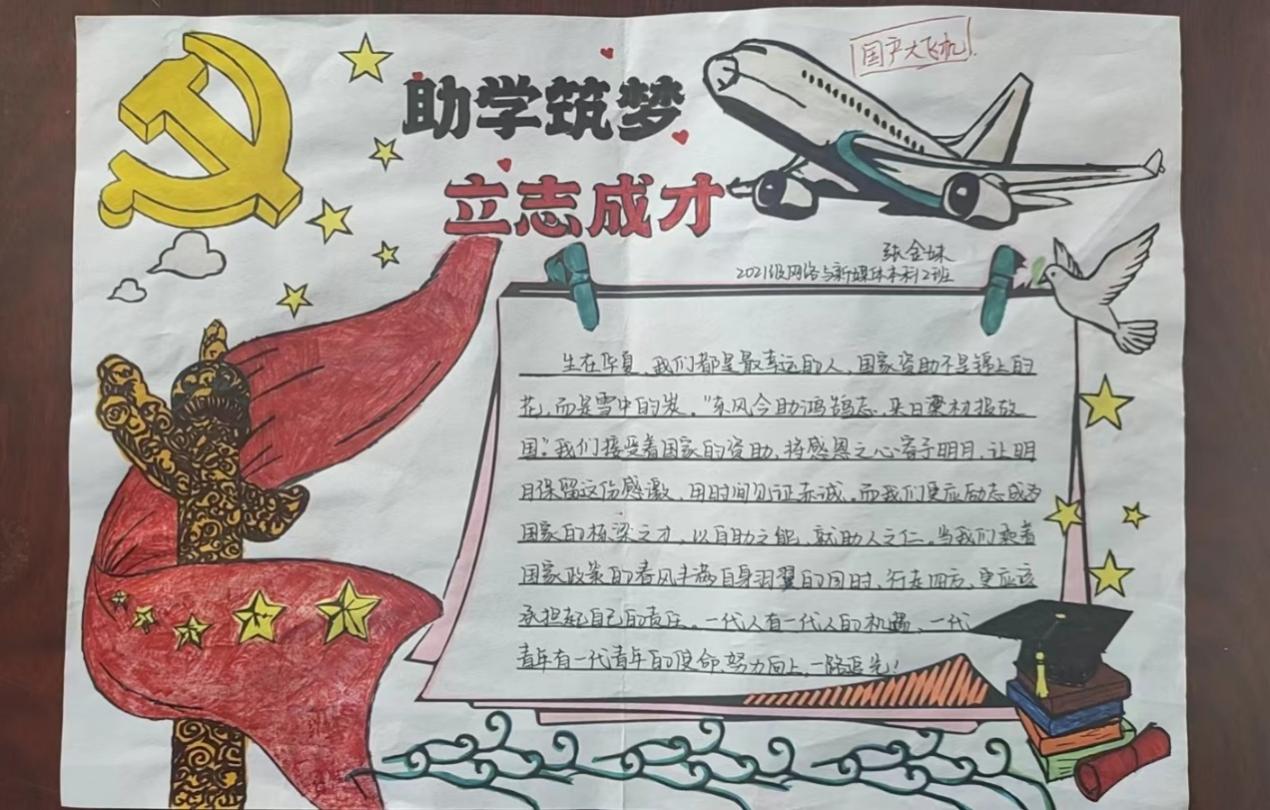 国产大飞机
助学筑梦
立志成才
张金妹
2021级网络与新媒体本科2班
生在华夏，我们都是最幸运的人，国家资助不是锦上的
花，而是雪中的炭。“东风今助鸿鹄志，来日栗材报故
国”我们接受着国家的资助，将感恩之心寄予明月，让明
月保留这份感激，用时间见证赤诚。而我们更应励志成为
国家的栋梁之才，以自助之能，就助人之仁。当我们乘着
国家政策的春风丰满自身羽翼的同时，行走四方，更应该
承担起自己的责任。一代人有一代人的机遇，一代
青年有一代青年的使命，努力向上，一路追光！